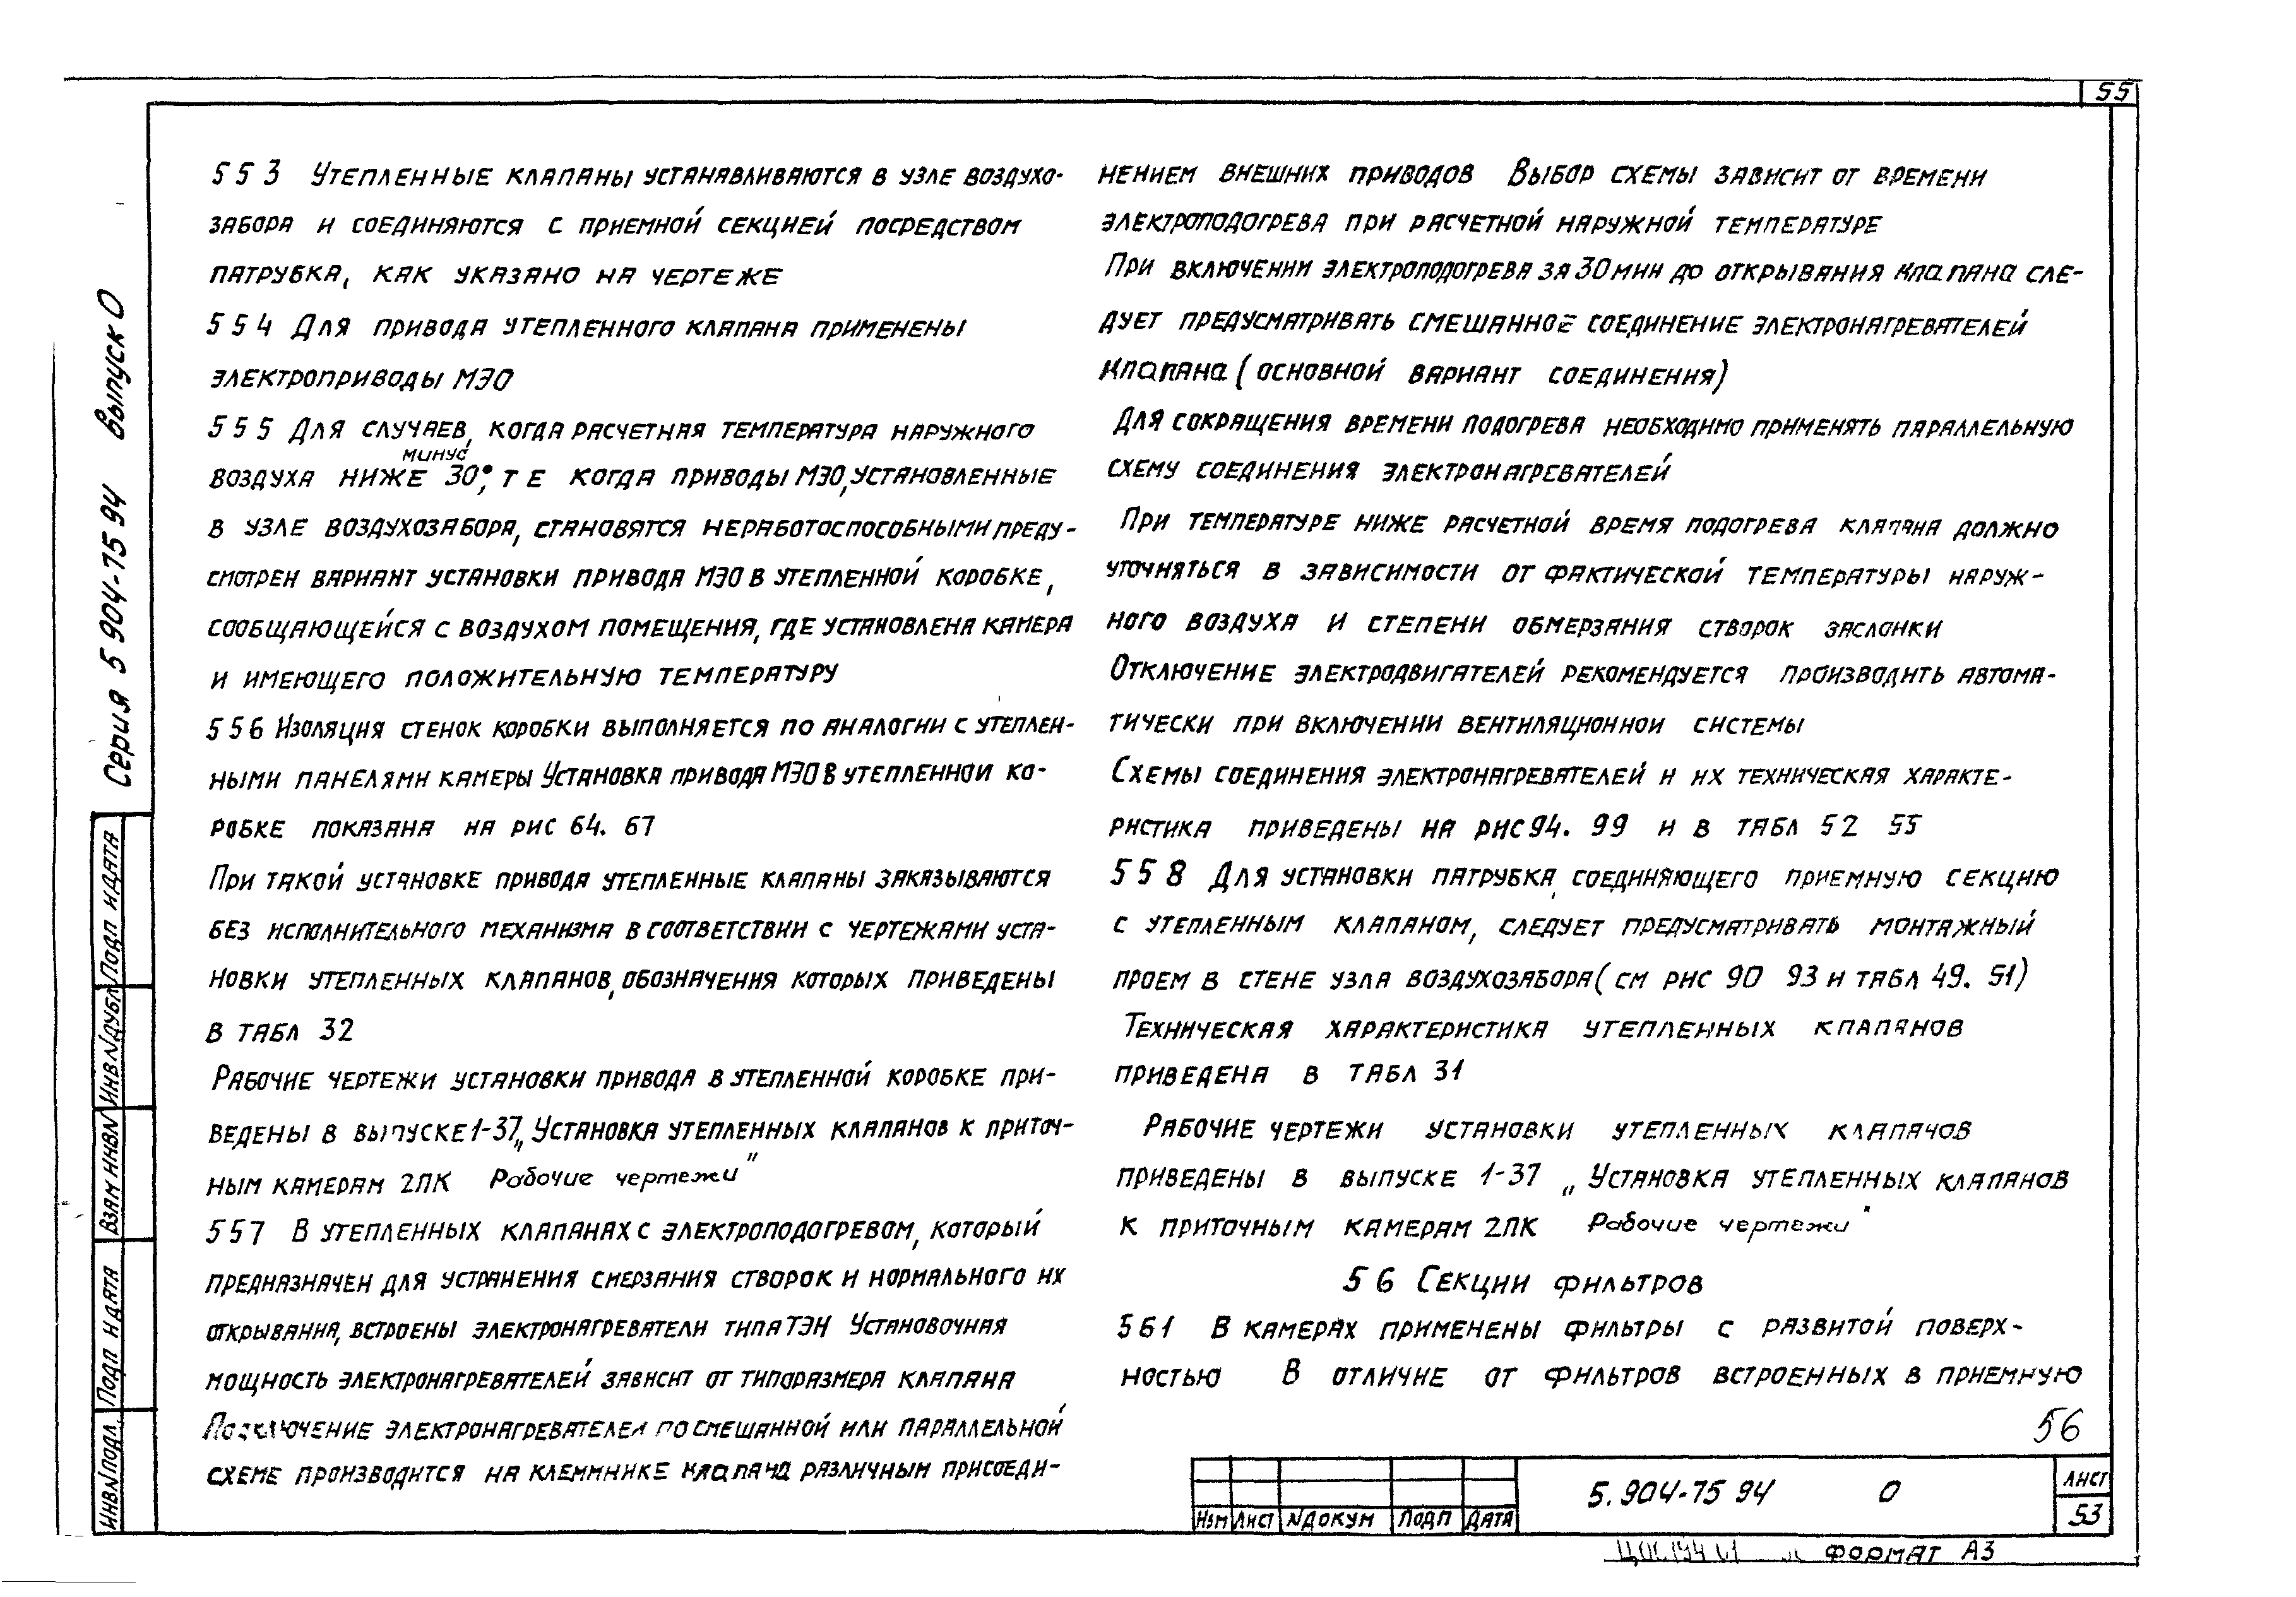 55
5 5 3 Утепленные клапаны устанавливаются в узле воздухо-
забора и соединяются с приемной секцией посредством
патрубка, как указано на чертеже
5 5 4 Для привода утепленного клапана применены
электроприводы МЭО
5 5 5 Для случаев, когда расчетная температура наружного
минус
воздуха ниже 30°, т е когда приводы МЭО, установленные
в узле воздухозабора, становятся неработоспособными преду-
смотрен вариант установки привода МЭО в утепленной коробке,
сообщающейся с воздухом помещения, где установлена камера
и имеющего положительную температуру
5 5 6 Изоляция стенок коробки выполняется по аналогии с утеплен-
ными панелями камеры Установка привода МЭО в утепленной ко-
робке показана на рис 64. 67
При такой установке привода утепленные клапаны заказываются
без исполнительного механизма в соответствии с чертежами уста-
новки утепленных клапанов, обозначения которых приведены
в табл 32
Рабочие чертежи установки привода в утепленной коробке при-
ведены в выпуске 1-37 „Установка утепленных клапанов к приточ-
ным камерам 2ПК Рабочие чертежи"
5 5 7 В утепленных клапанах с электроподогревом, который
предназначен для устранения смерзания створок и нормального их
открывания, встроены электронагреватели типа ТЭН Установочная
мощность электронагревателей зависит от типоразмера клапана
Подключение электронагревателей по смешанной или параллельной
схеме производится на клеммнике клапана различным присоеди-
нением внешних приводов Выбор схемы зависит от времени
электроподогрева при расчетной наружной температуре
При включении электроподогрева за 30 мин до открывания клапана сле-
дует предусматривать смешанное соединение электронагревателей
клапана (основной вариант соединения)
Для сокращения времени подогрева необходимо применять параллельную
схему соединения электронагревателей
При температуре ниже расчетной время подогрева клапана должно
уточняться в зависимости от фактической температуры наруж-
ного воздуха и степени обмерзания створок заслонки
Отключение электродвигателей рекомендуется производить автома-
тически при включении вентиляционной системы
Схемы соединения электронагревателей и их техническая характе-
ристика приведены на рис 94. 99 и в табл 52 55
5 5 8 Для установки патрубка, соединяющего приемную секцию
с утепленным клапаном, следует предусматривать монтажный
проем в стене узла воздухозабора (см рис 90 93 и табл 49. 51)
Техническая характеристика утепленных клапанов
приведена в табл 31
Рабочие чертежи установки утепленных клапанов
приведены в выпуске 1-37 „Установка утепленных клапанов
к приточным камерам 2ПК Рабочие чертежи"
5 6 Секции фильтров
5 6 1 В камерах применены фильтры с развитой поверх-
ностью В отличие от фильтров встроенных в приемную
56
Серия 5 904-75 94 Выпуск 0
Подп и дата
Инв N дубл
Взам инв N
Подп и дата
Инв N подл
Изм Лист N докум Подп Дата
5. 904-75 94 0
Лист
53
Формат А3